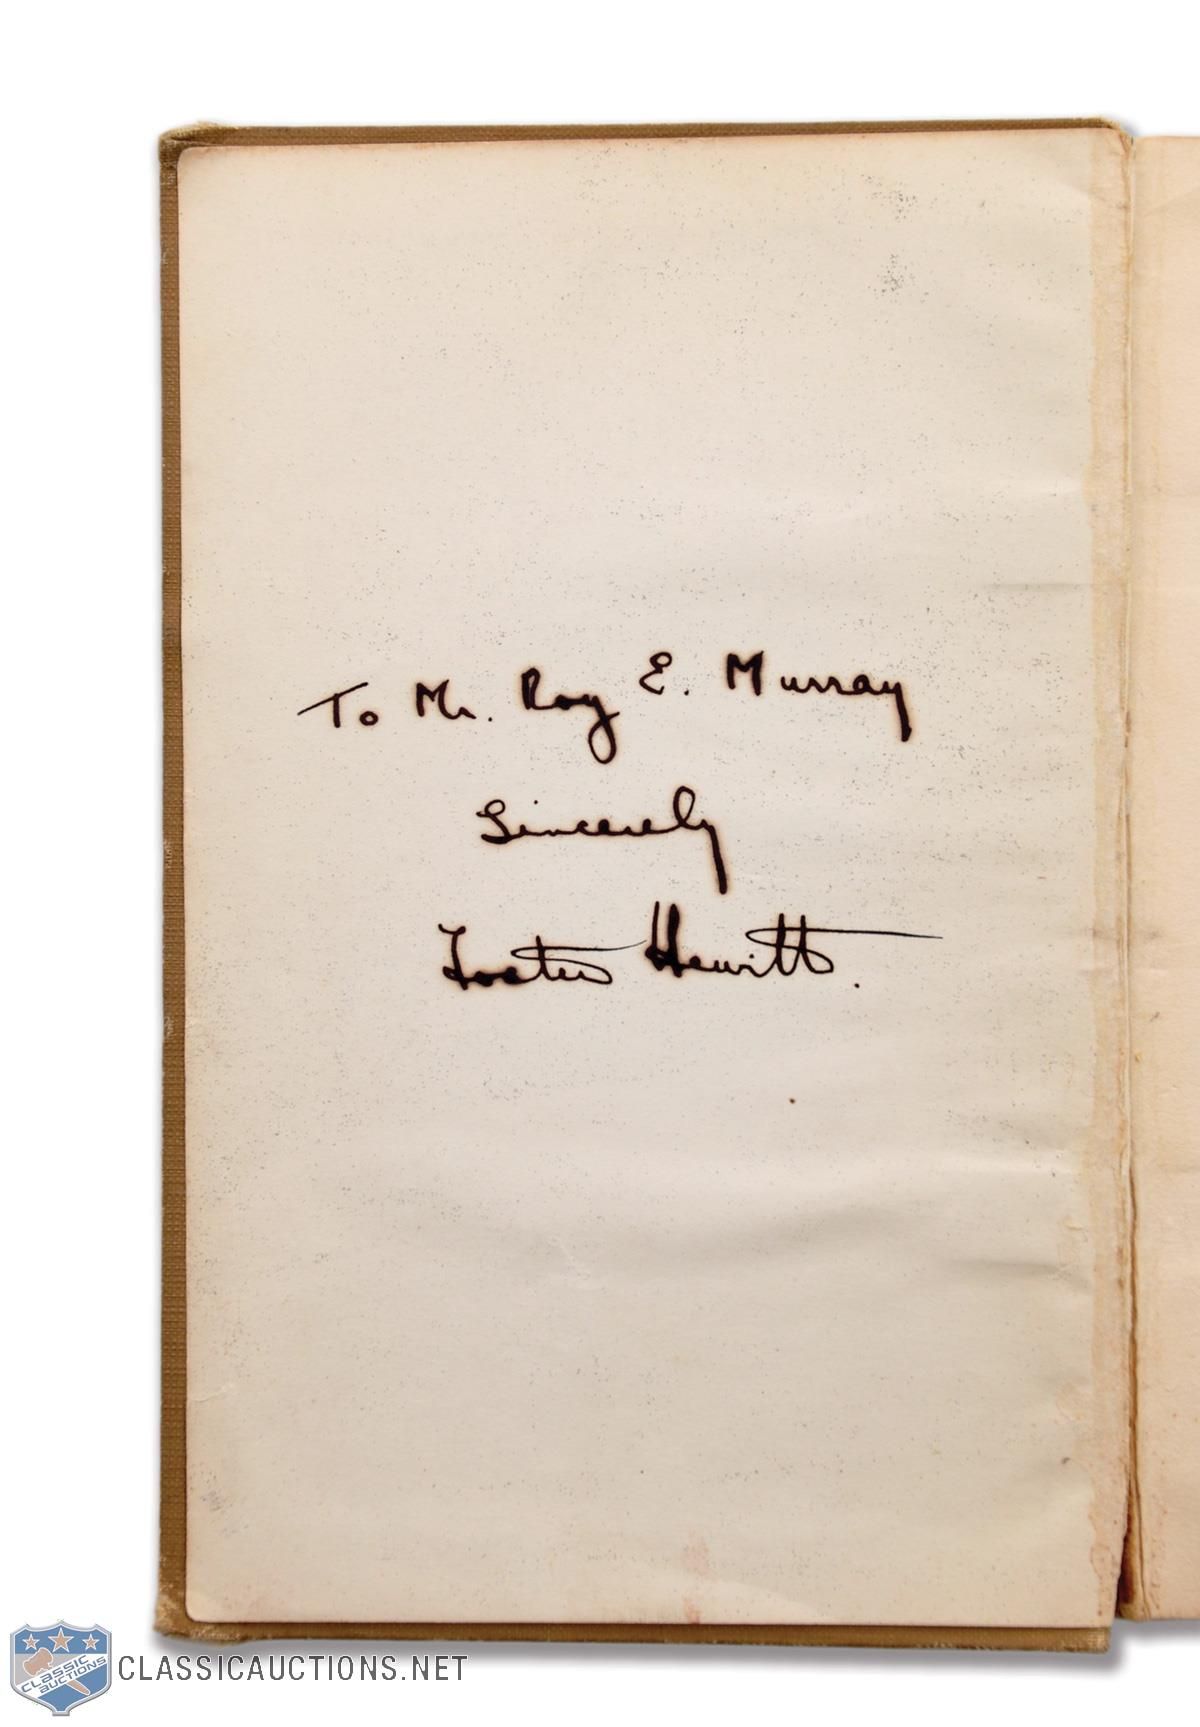 To Mr. Roy E. Murray
Sincerely
Foster Hewitt.
CLASSIC AUCTIONS
CLASSICAUCTIONS.NET